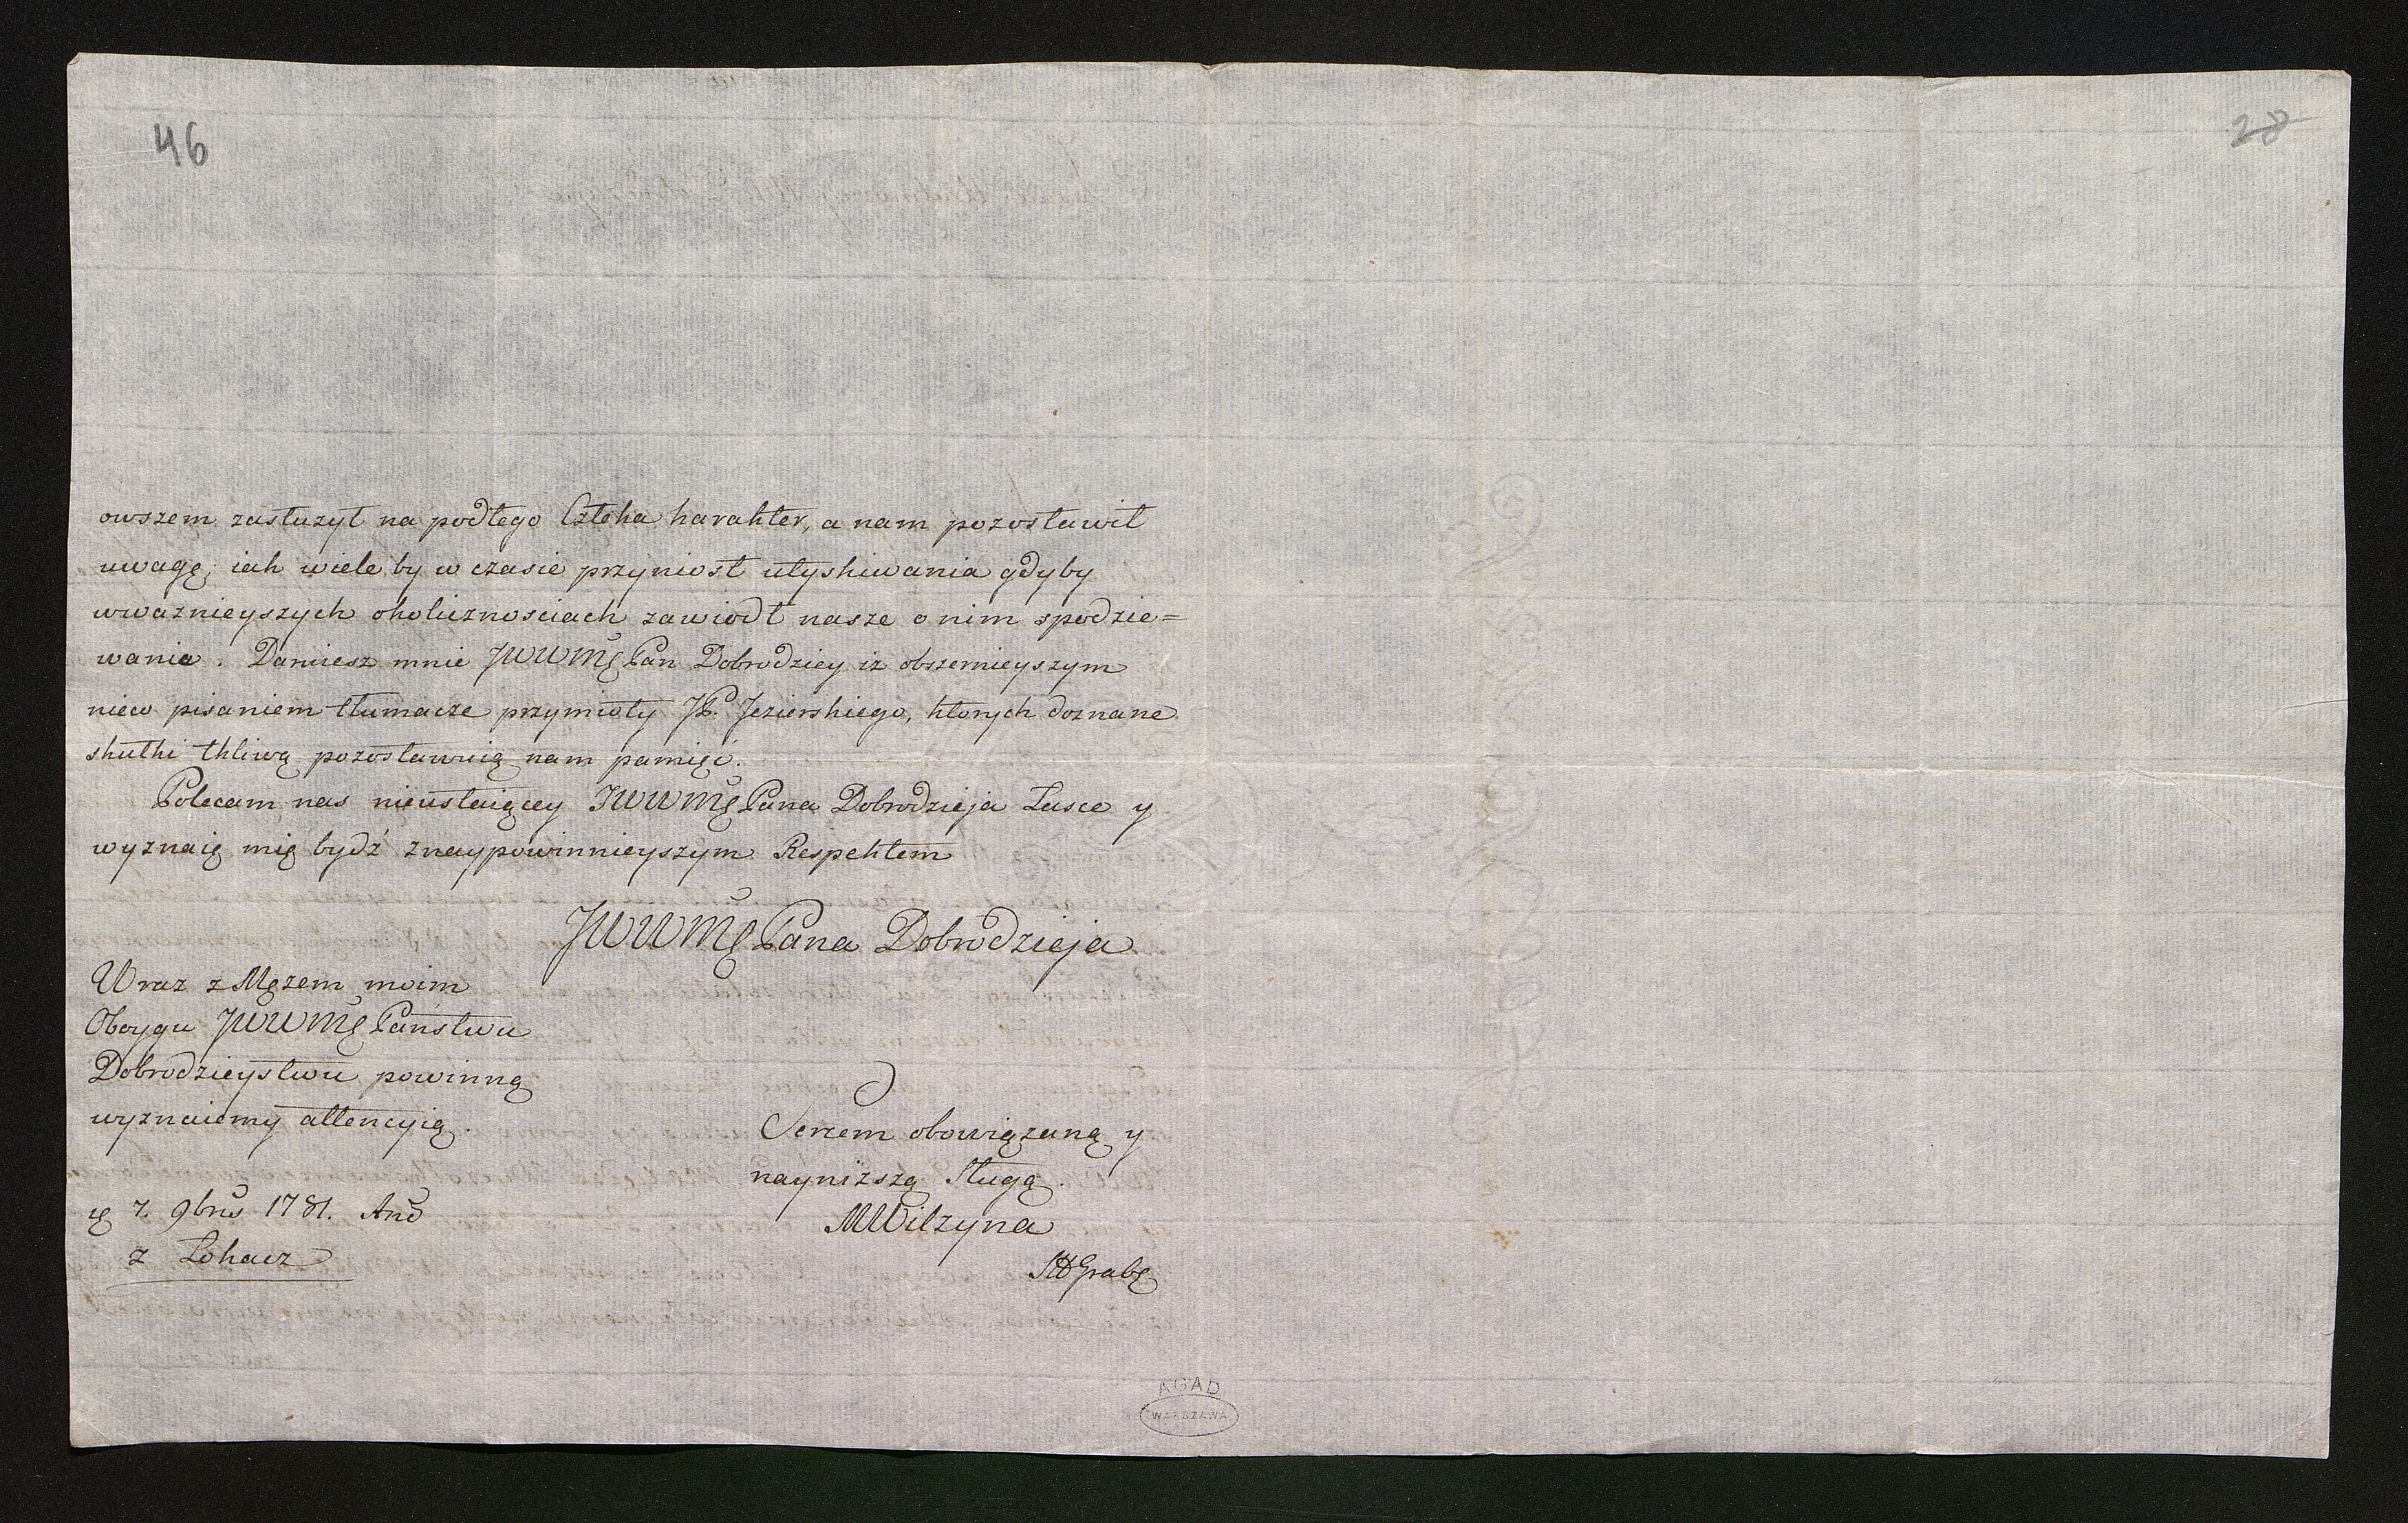 46
28
owszem zasłużył na podłego Człeka karakter, a nam pozostawił
uwagę; iak wiele by w czasie przyniosł utyskiwania gdyby
wważnieyszych okolicznosciach zawiodł nasze o nim spodzie=
wania. Daruiesz mnie JWWMę Pan Dobrodziey iż obszernieyszym
nieco pisaniem tłumacze przymioty JP. Jezierskiego, ktorych doznane
skutki tkliwą pozostawuią nam pamięć.
Polecam nas nieustaiącey JWWMę Pana Dobrodzieja Łasce y
wyznaię mię bydź znaypowinnieyszym Respektem
JWWMę Pana Dobrodzieja
Wraz z Mężem moim
Oboygu JWWMę Państwu
Dobrodzieystwu powinną
wyznaiemy attencyią.
Sercem obowiązaną y
nayniższą Sługą.
MWilzyna
7. 9bris 1781. Ano
z Łokacz
AGAD
WARSZAWA